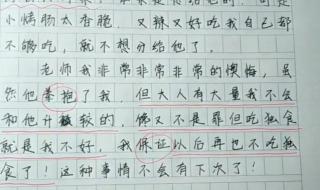 小烤肠太香脆，又辣又好吃我自己都
不够吃，就不想分给他了。
老师我非常非常非常的懊悔，虽
然他举报了我，但大人有大量我不会
和他计较的，馋又不是罪但吃独食
就是我不好，我保证以后再也不吃独
食了！这种事情不会有下次了！